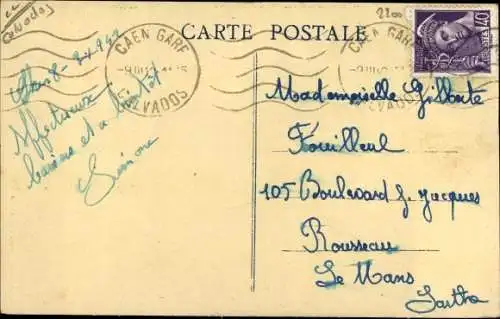 CARTE POSTALE
Calvados
2100
CAEN GARE
CALVADOS
CAEN GARE
CALVADOS
40
Affectueux
baisers et a bientôt
Simone
Mademoiselle Gilberte
Fouilleul
105 Boulevard J. Jacques
Rousseau
Le Mans
Sarthe